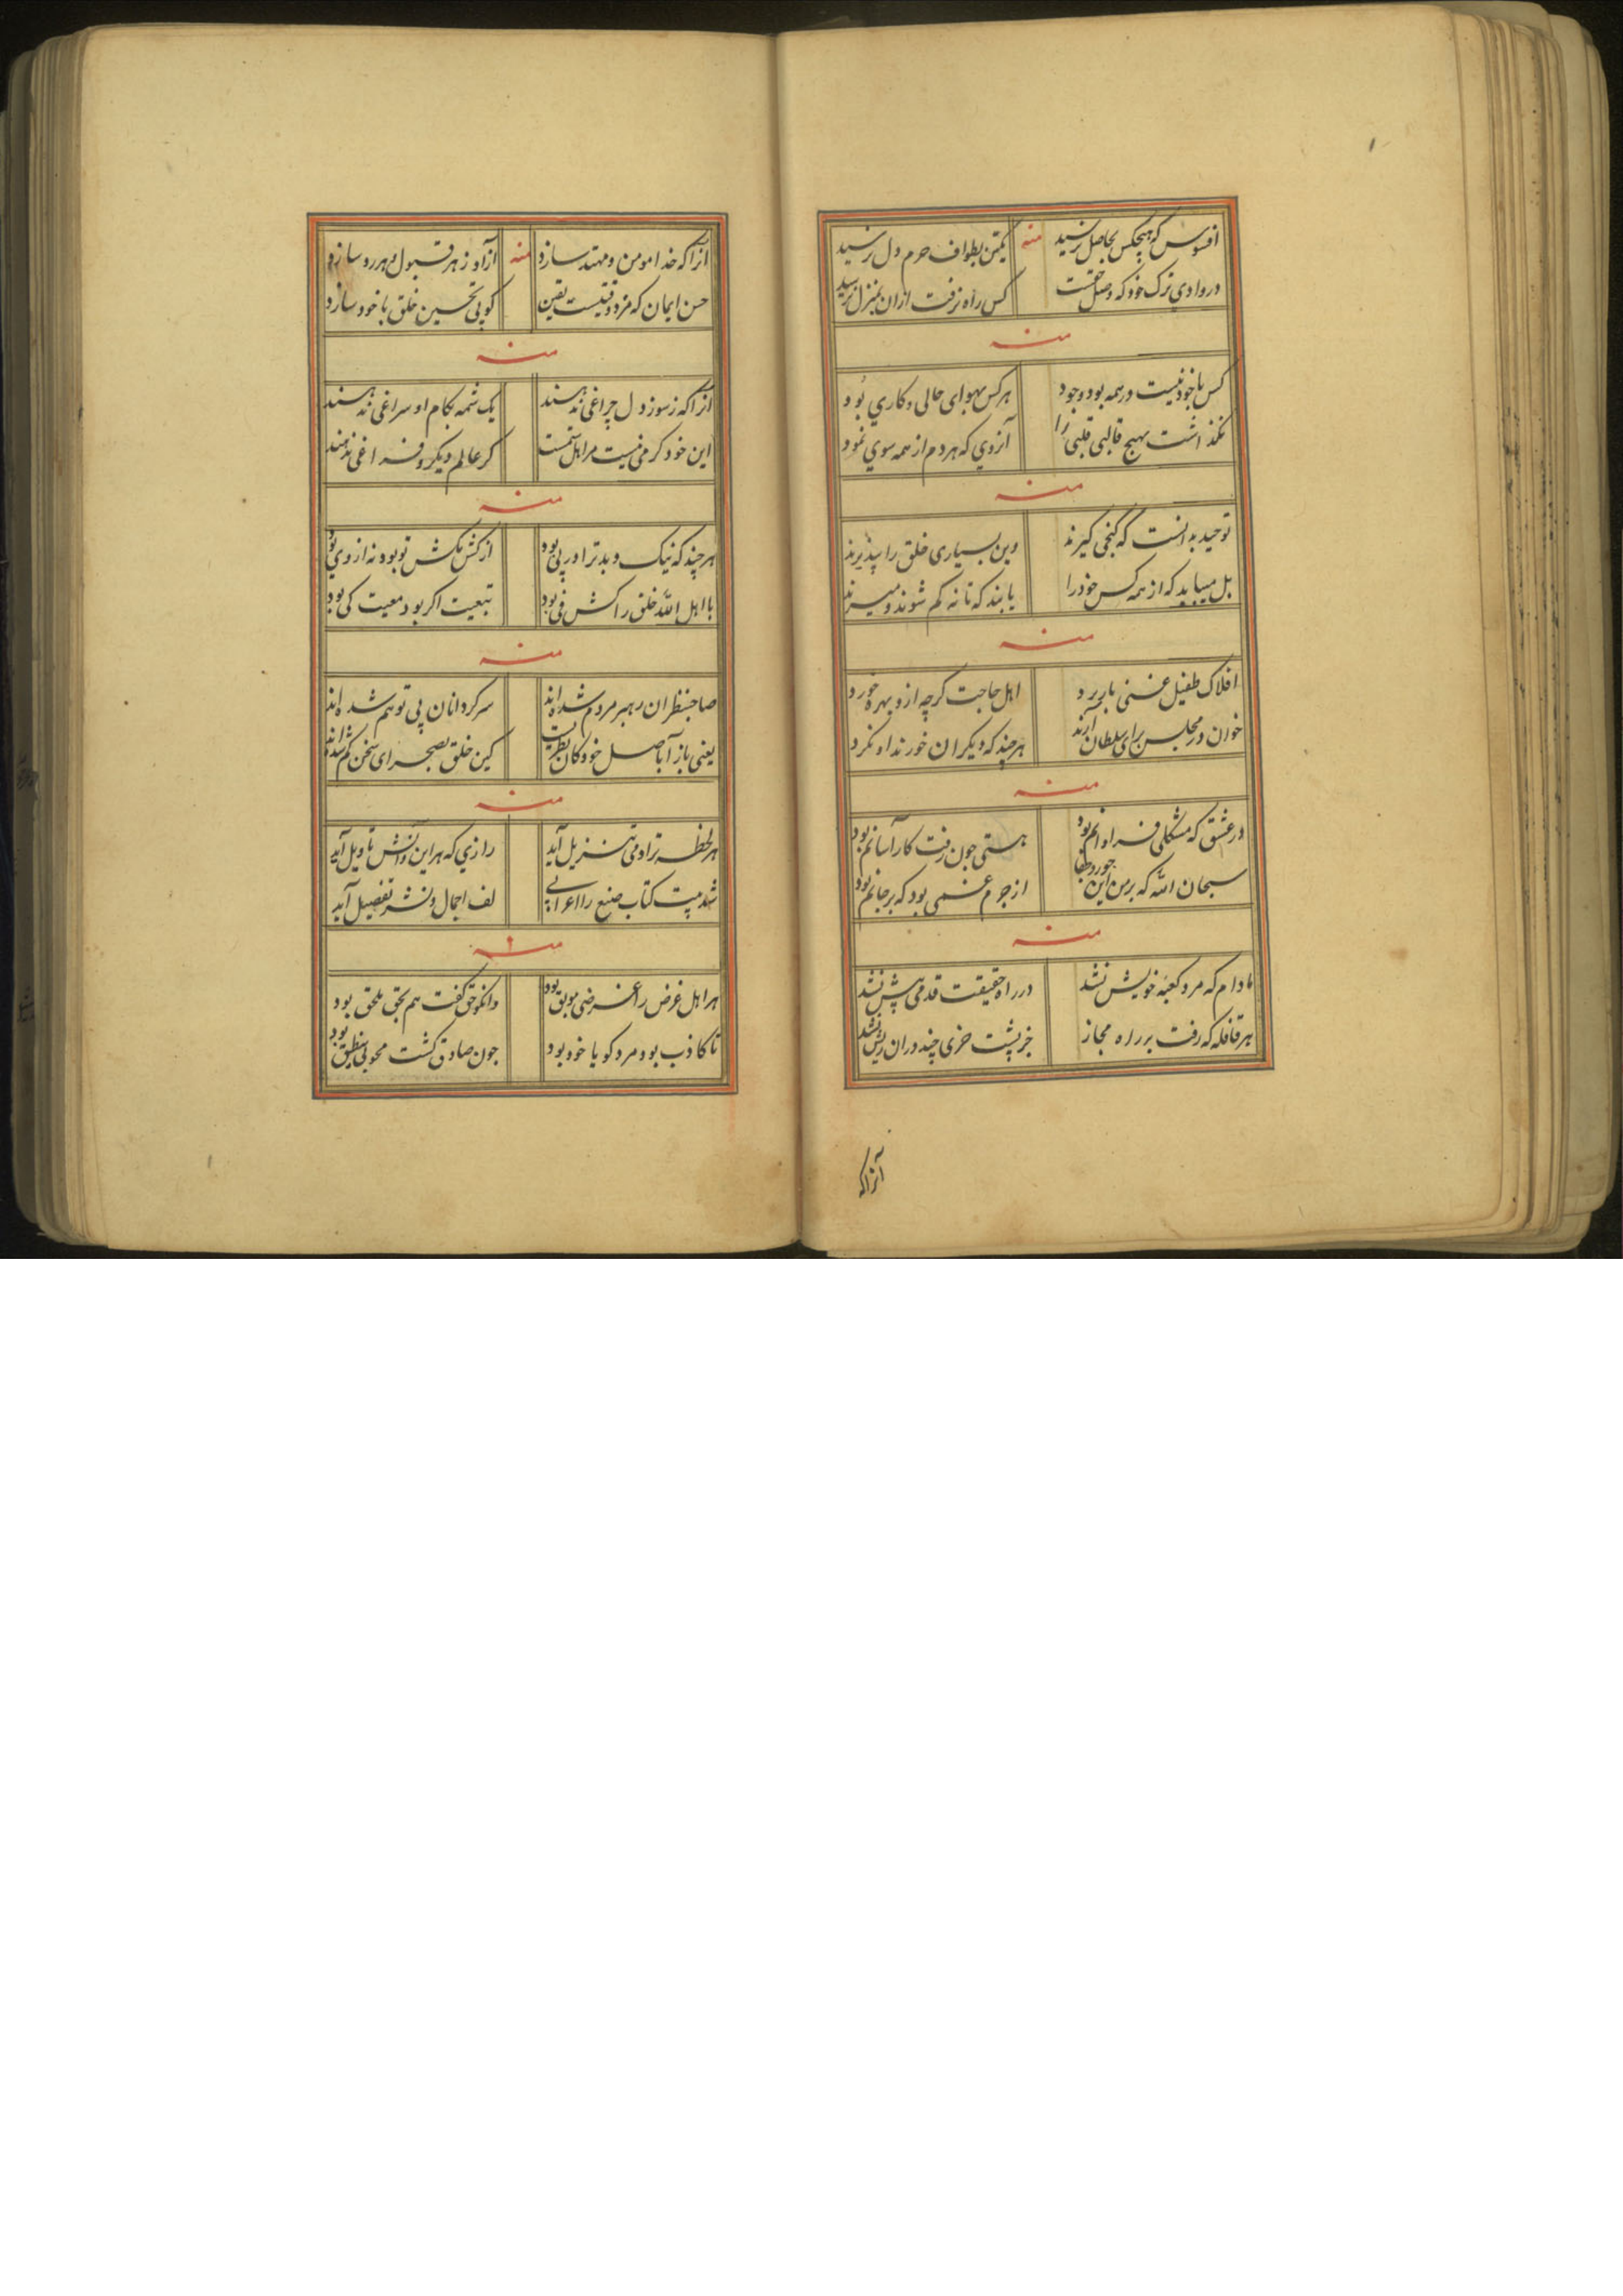 افسوس که هیچکس بحاصل نرسید منه یکتن بطواف حرم دل نرسید
در وادی ترک خود که وصل حقست کس راه نرفت ازان بمنزل نرسید
منه
کس با خود نیست در همه بود وجود هر کس بهوای حالی و کاری بود
نگذاشت بهیچ قالبی قلبی را آنروی که هر دم از همه سوی نمود
منه
توحید به آنست که کنجی گیرند وین بسیاری خلق را نپذیرند
بل میباید که از همه کس خود را یابند که تا نه کم شوند و میرند
منه
افلاک طفیل غنی بار برد اهل حاجت گرچه ازو بهره خورد
خوان در مجلس برای سلطان آرند هر چند که دیگران خورند او نخورد
منه
در عشق که مشکلی فراوانم بود هستی چون رفت کار آسانم بود
سبحان الله که بر من این جور و جفا از جرم غمی بود که بر جانم بود
منه
مادام که مرد کعبه خویش نشد در راه حقیقت قدمی پیش نشد
هر قافله که رفت بر راه مجاز جز پشت خری چند دران ریش نشد
آنرا که
آنرا که خدا مومن و مهتد سازد منه آزاد ز هر قبول و هر رد سازد
حسن ایمان که مزد وقتیست یقین کوبی تحسین خلق با خود سازد
منه
آنرا که ز سوز دل چراغی ندهند یک شمه بکام او سراغی ندهند
این خود کرمی نیست مر اهل ستمست کر عالم دیگرو فراغی ندهند
منه
هر چند که نیک و بد ترا در پی بود از کش مکش تو بود نه از وی بود
با اهل الله خلق را کش فی بود تبعیت اگر بود معیت کی بود
منه
صاحبنظران رهبر مردم شده اند سرگردانان پی توهم شده اند
یعنی باز آ باصل خود کان نظریست کین خلق بصحرای سخن گم شده اند
منه
هر لحظه ترا دمی تنزیل آید رازی که هر این و آنش تاویل آید
شد بیت کتاب صنع را اعرابی لف اجمال و نشر تفصیل آید
منه
هر اهل غرض را غرضی موبق بود وانکو حق گفت هم بحق ملحق بود
تا کاذب بود مرد کویا خود بود چون صادق گشت محو بی منطق بود